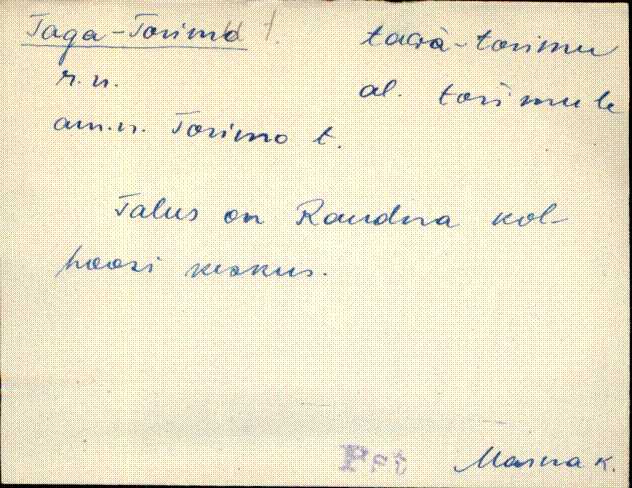 Taga-Torimo t. tacà-torimu
r.n. al. torimule
am.n. Torimo t.
Talus on Raudna kol-
hoosi keskus.
Pst Marna k.